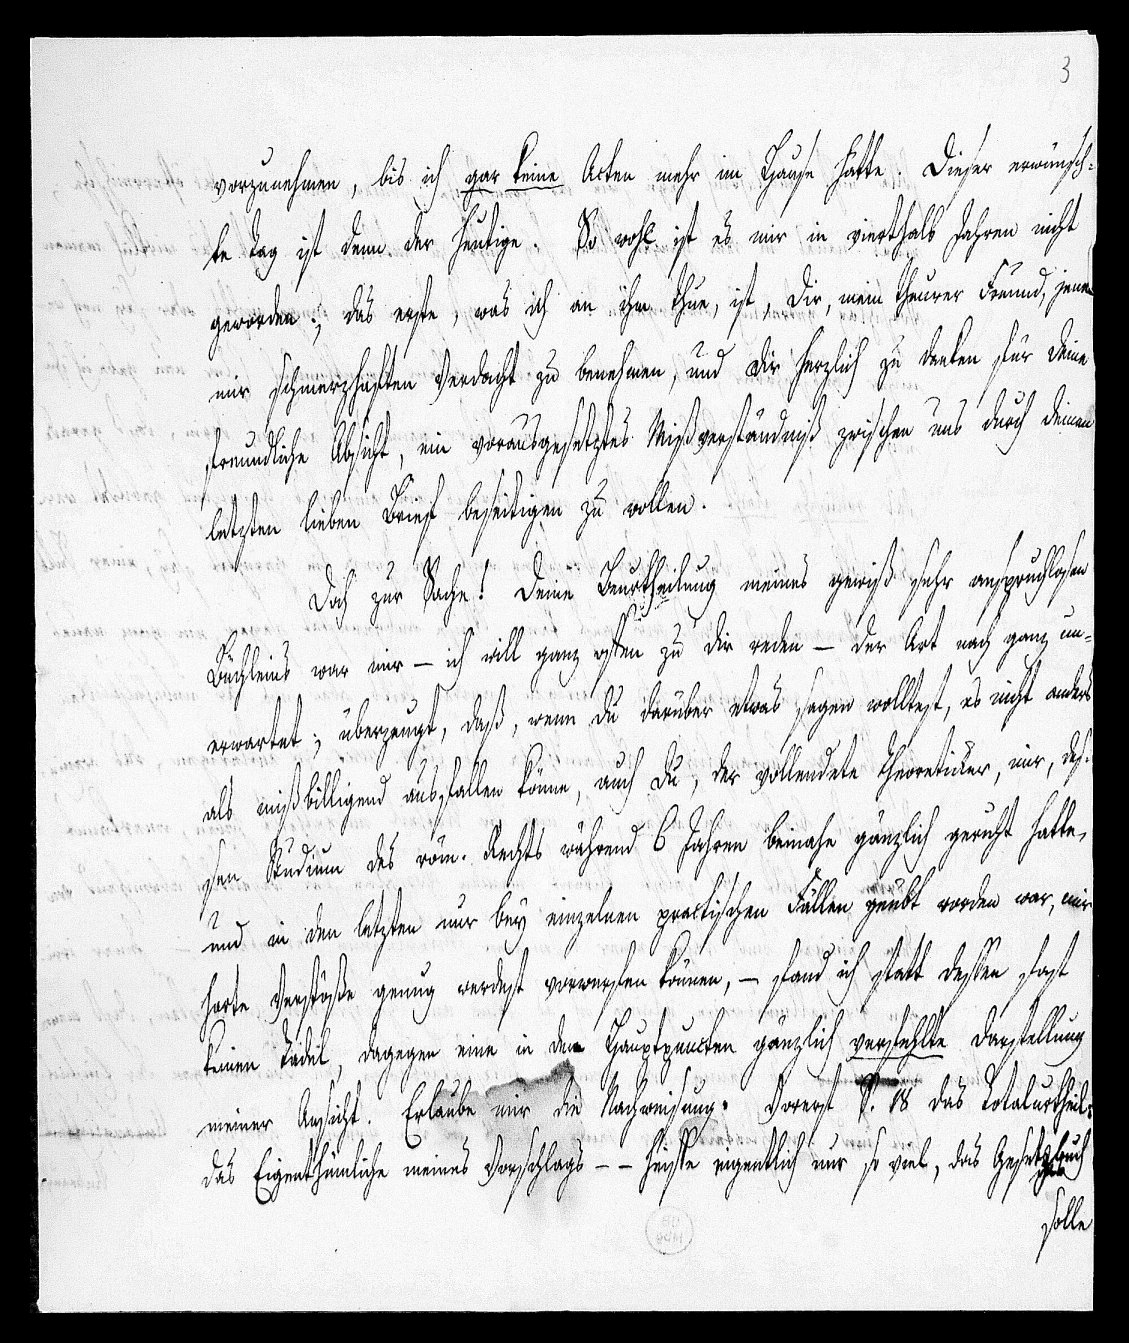 3
vorzunehmen, bis ich gar keine Acten mehr im Hause hätte. Dieser erwünsch-
te Tag ist denn der heutige. So wohl ist es mir in vierthalb Jahren nicht
geworden; das erste, was ich an ihm thue, ist, Dir, mein theurer Freund, jenen
mir schmerzhaften Verdacht zu benehmen, und Dir herzlich zu danken für Deine
freundliche Absicht, ein vorausgesetztes Mißverständniß zwischen uns durch Deinen
letzten lieben Brief beseitigen zu wollen.
Doch zur Sache! Deine Beurtheilung meines gewiß sehr anspruchlosen
Büchleins war mir – ich will ganz offen zu Dir reden – der Art nach ganz un-
erwartet; überzeugt, daß, wenn Du darüber etwas sagen wolltest, es nicht anders
als mißbilligend ausfallen könne, auch Du, der vollendete Theoretiker, mir, des-
sen Studium des röm. Rechts während 6 Jahren beinahe gänzlich geruht hatte,
und in den letzten nur bey einzelnen practischen Fällen geübt worden war, mir
harte Verstöße genug werdest vorwerfen können, – fand ich statt dessen fast
keinen Tadel, dagegen eine in den Hauptpuncten gänzlich verfehlte Darstellung
meiner Ansicht. Erlaube mir die Nachweisung. Vorerst S. 18 das Totalurtheil:
das Eigenthümliche meines Vorschlags – – heiße eigentlich nur so viel, das Gesetzbuch
solle